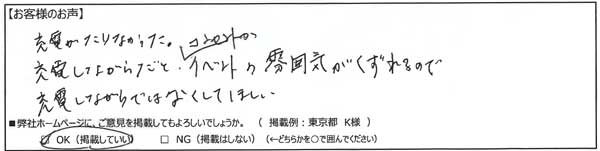 【お客様のお声】
充電がたりなかった。
コンセントから
充電しながらだと、イベントの雰囲気がくずれるので
充電しながらではなくしてほしい
■弊社ホームページに、ご意見を掲載してもよろしいでしょうか。（ 掲載例：東京都 K様 ）
□ OK（掲載していい） □ NG（掲載はしない）（←どちらかを○で囲んでください）